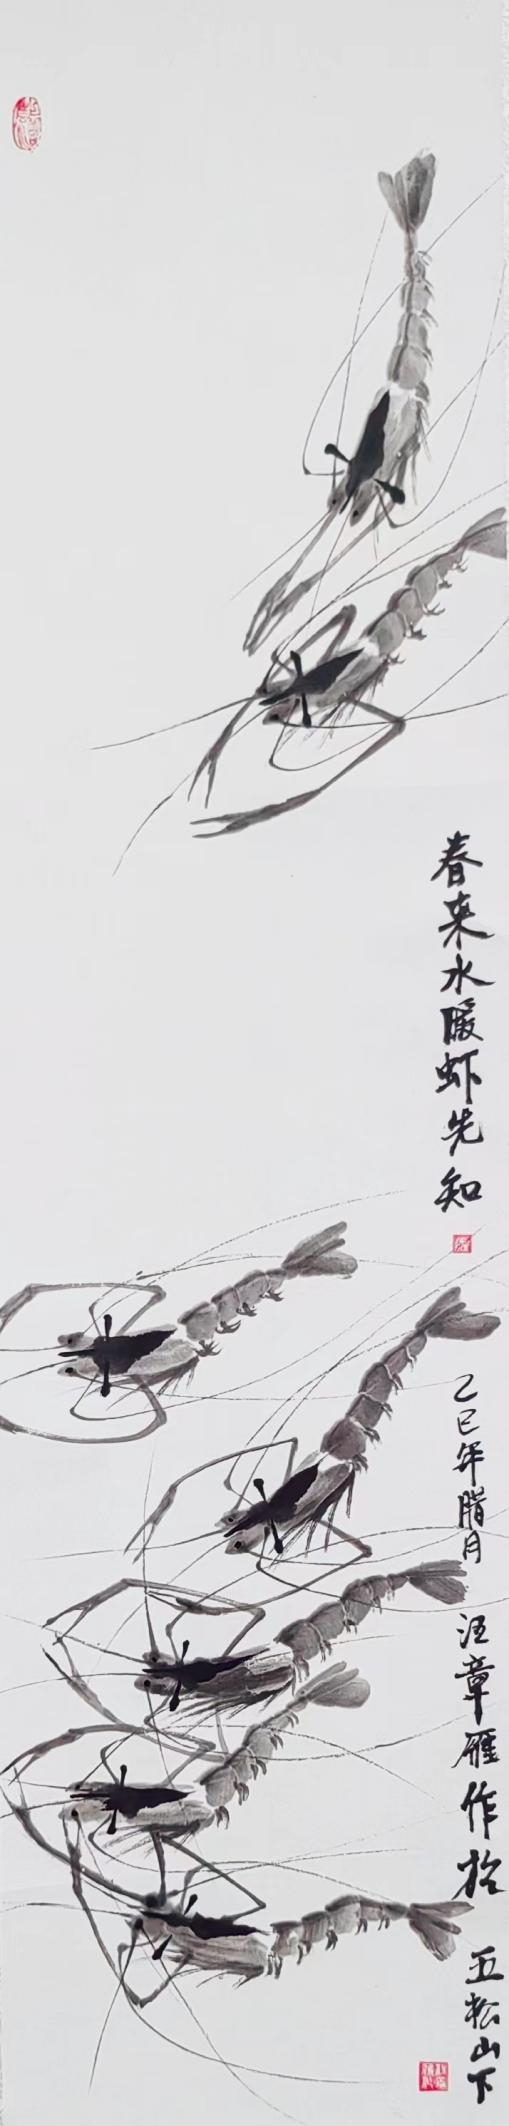 春来水暖虾先知
乙巳年腊月 汪章雁作於 五松山下